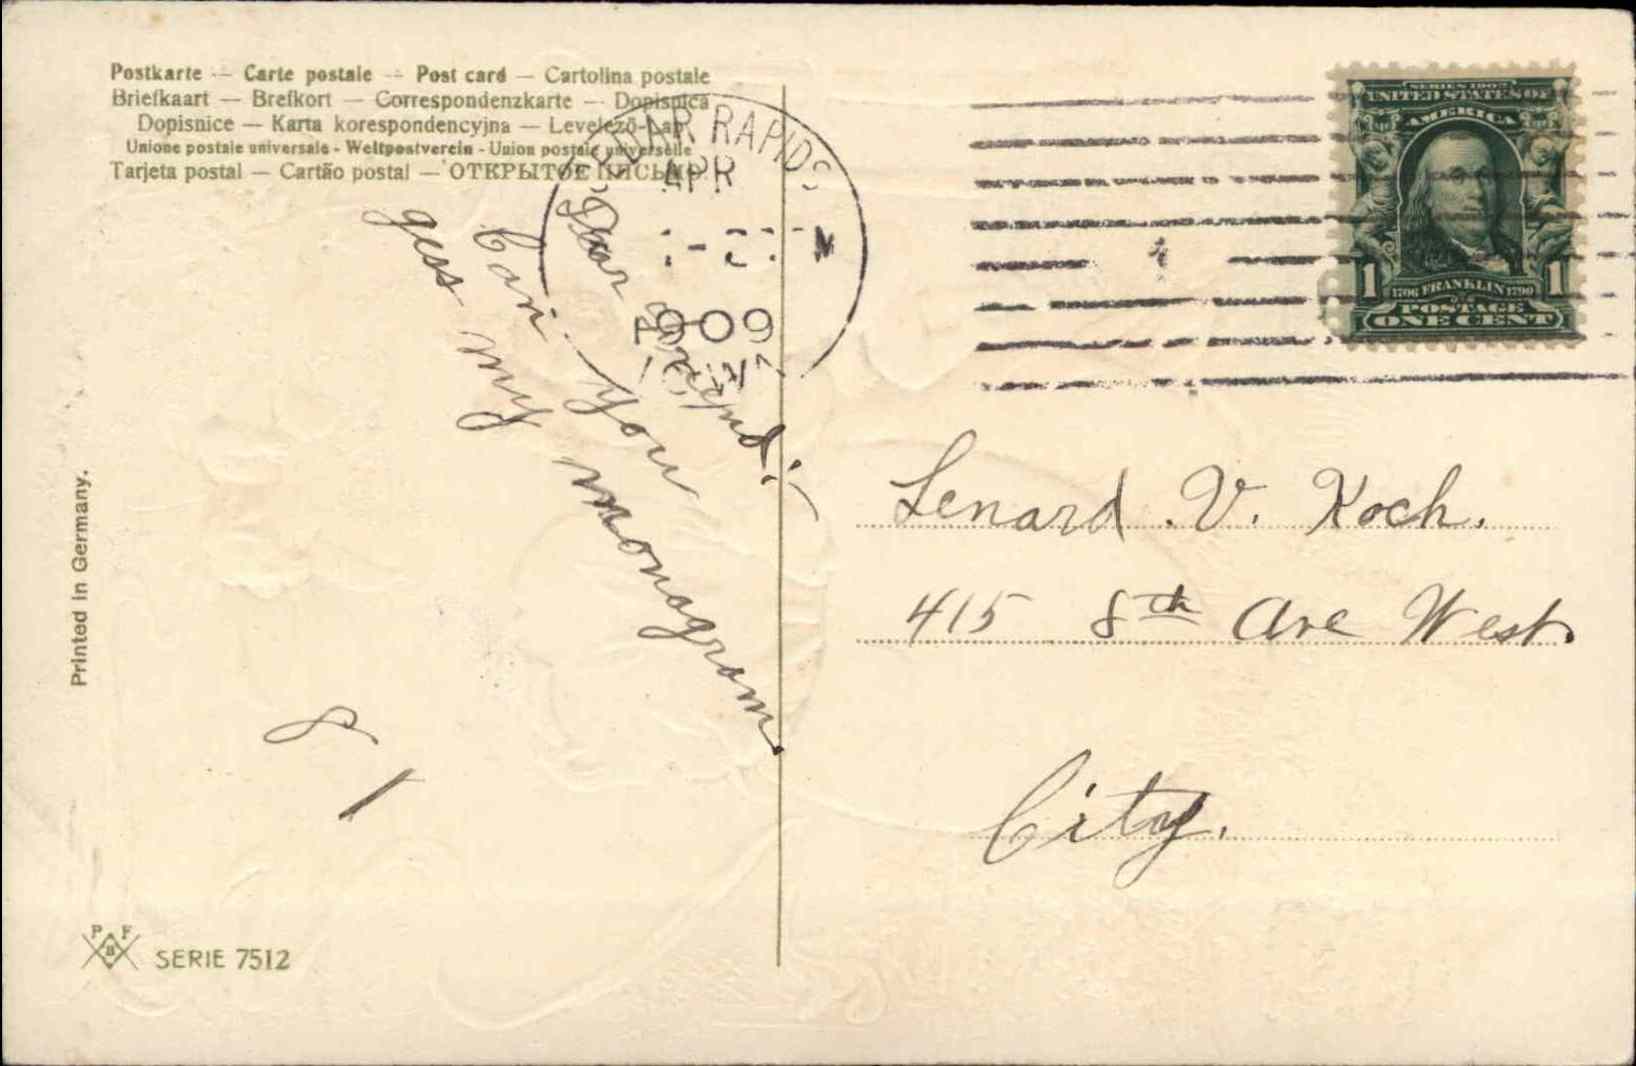 Postkarte — Carte postale — Post card — Cartolina postale
Briefkaart — Brefkort — Correspondenzkarte — Dopisnica
Dopisnice — Karta korespondencyjna — Levelező-Lap.
Unione postale universale - Weltpostverein - Union postale universelle
Tarjeta postal — Cartão postal — ОТКРЫТОЕ ПИСЬМО.
CEDAR RAPIDS
APR
1909
IOWA
SERIES 1902
UNITED STATES OF
AMERICA
1 1
1706 FRANKLIN 1790
POSTAGE
ONE CENT
Dear Friend:—
Can you
gess my
monogram.
8 1
Lenard. V. Koch.
415 8th Ave West.
City.
Printed in Germany.
P F
B
SERIE 7512